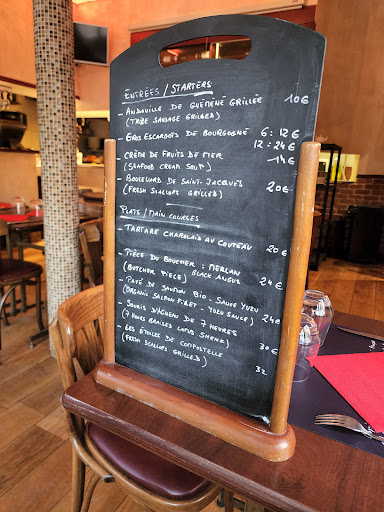 ENTRÉES / STARTERS
- ANDOUILLE DE GUÉMENÉ GRILLÉE 10€
(TRIBE SAUSAGE GRILLED)
- GROS ESCARGOTS DE BOURGOGNE 6: 12€
12: 24€
- CRÈME DE FRUITS DE MER 14€
(SEAFOOD CREAM SOUP)
- BOULEVARD DE SAINT-JACQUES 20€
(FRESH SCALLOPS GRILLED)
PLATS / MAIN COURSES
- TARTARE CHAROLAIS AU COUTEAU 20€
- PIÈCE DU BOUCHER : MERLAN 24€
(BUTCHER PIECE) BLACK ANGUS
- PAVÉ DE SAUMON BIO - SAUCE YUZU 24€
(ORGANIC SALMON FILET - YUZU SAUCE)
- SOURIS D'AGNEAU DE 7 HEURES 30€
(7 HOURS BRAISED LAMB SHANK)
- LES ÉTOILES DE COMPOSTELLE 32
(FRESH SCALLOPS GRILLED)